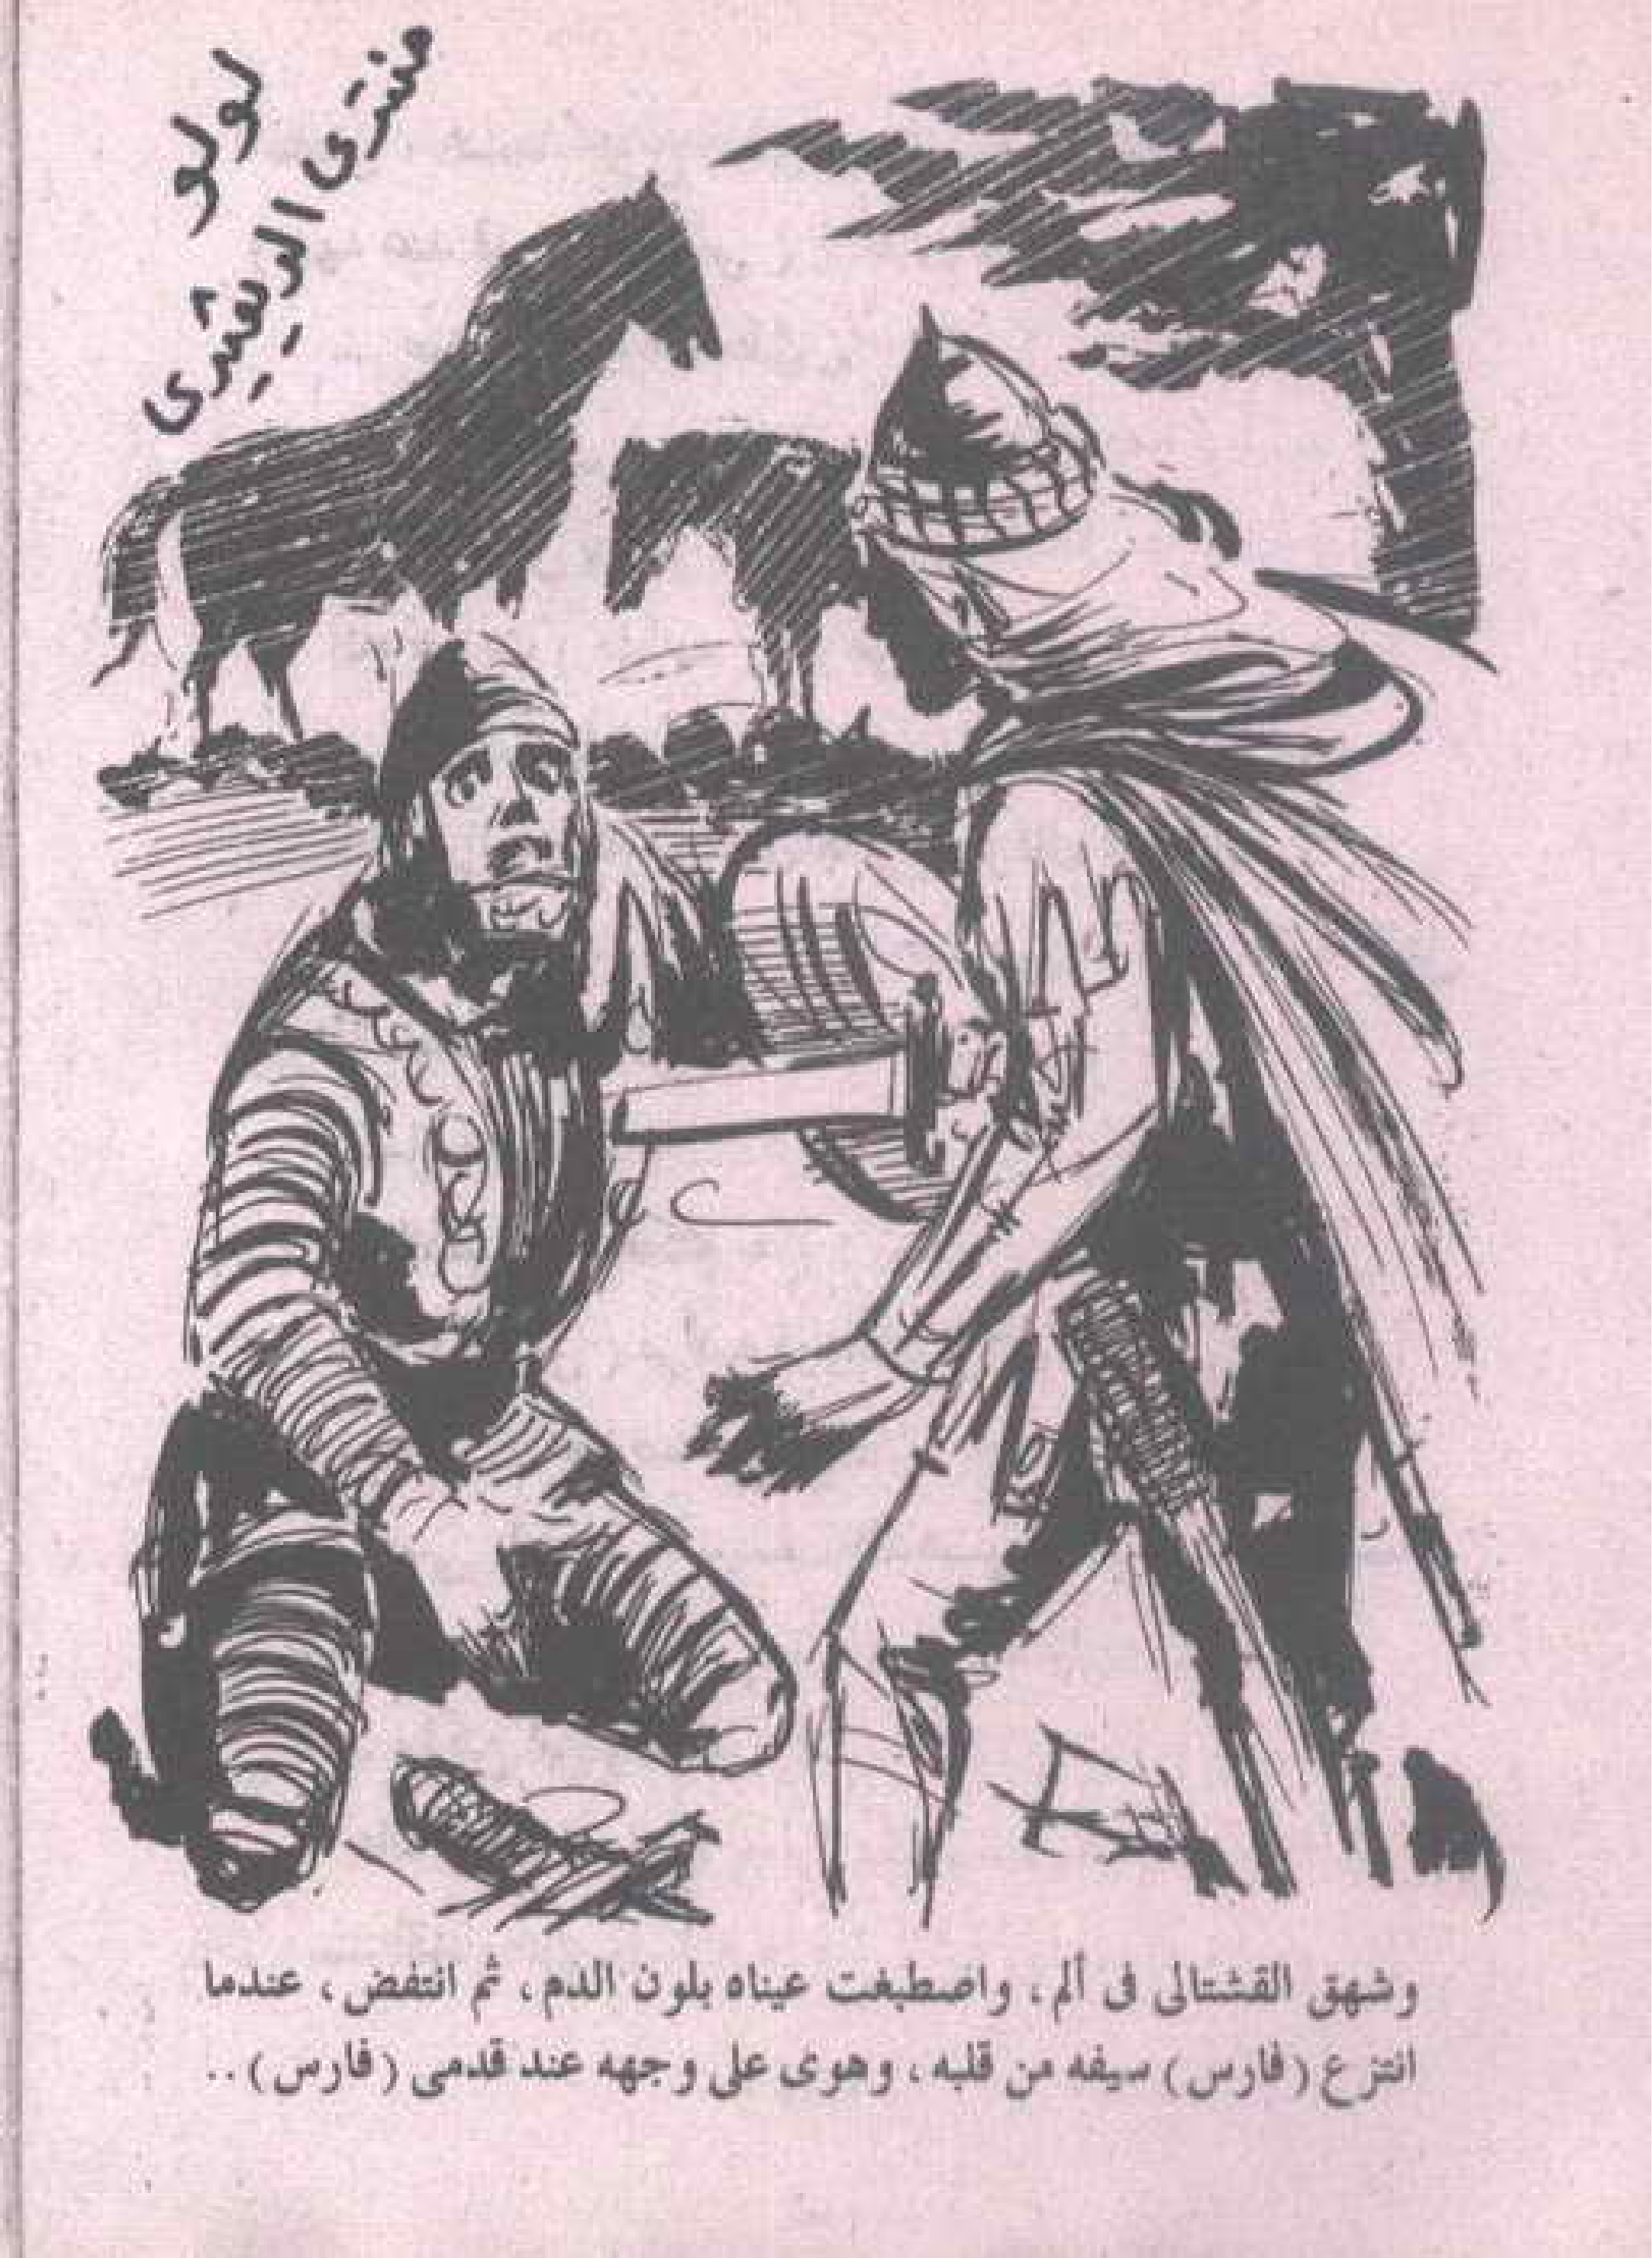 لولو
منتدى اليشرى
وشهق القشتالى فى ألم، واصطبغت عيناه بلون الدم، ثم انتفض، عندما
انتزع (فارس) سيفه من قلبه، وهوى على وجهه عند قدمى (فارس) ..